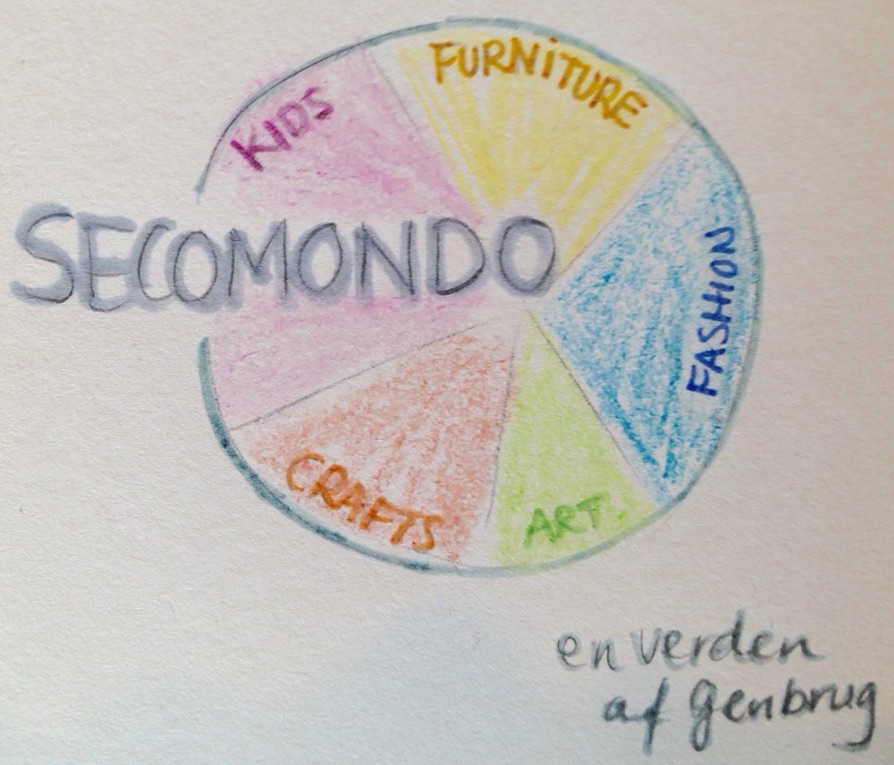 FURNiTURE
KIDS
SECOMONDO
FASHION
CRAFTS
ART.
en verden
af Genbrug